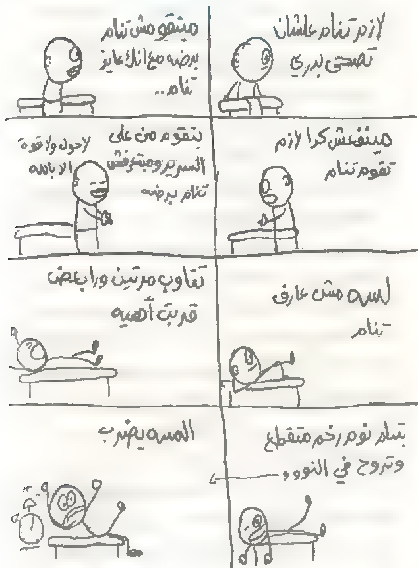 لازم تنام علشان
تصحى بدري
مبتقومش تنام
برضه مع انك عايز
تنام..
مينفعش كدا لازم
تقوم تنام
بتقوم من على
السرير ومبتعرفش
تنام برضه
لا حول ولا قوة
الا بالله
لسه مش عارف
تنام
تقاوب مرتين ورا بعض
قربت أهيه
بتنام نوم رخم متقطع
وتروح في النووو
المنبه يضرب